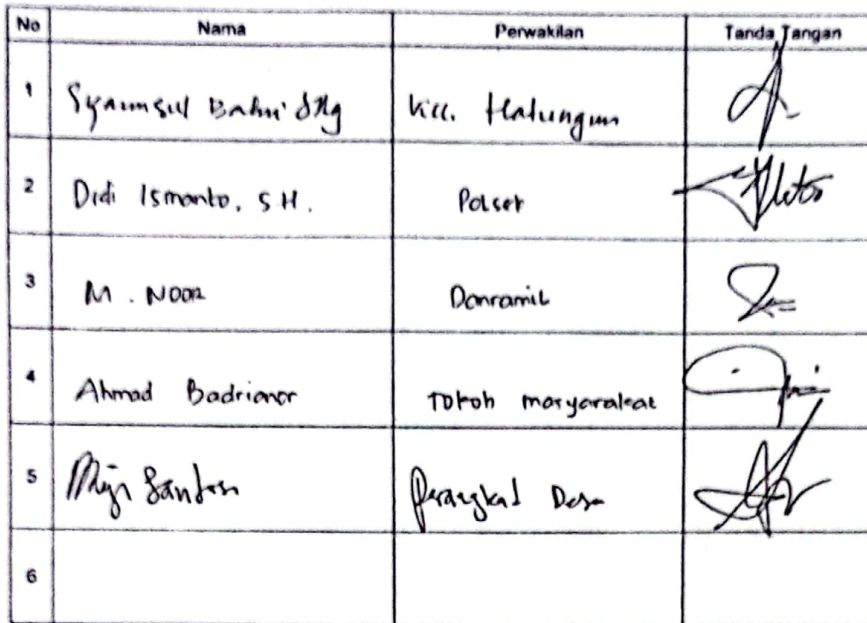 No Nama Perwakilan Tanda Tangan
1 Syamsul Bahri Kec. Hatungun
2 Didi Ismanto, S.H. Polsek
3 M. Noor Danramil
4 Ahmad Badrianor Tokoh masyarakat
5 Santoso Perangkat Desa
6